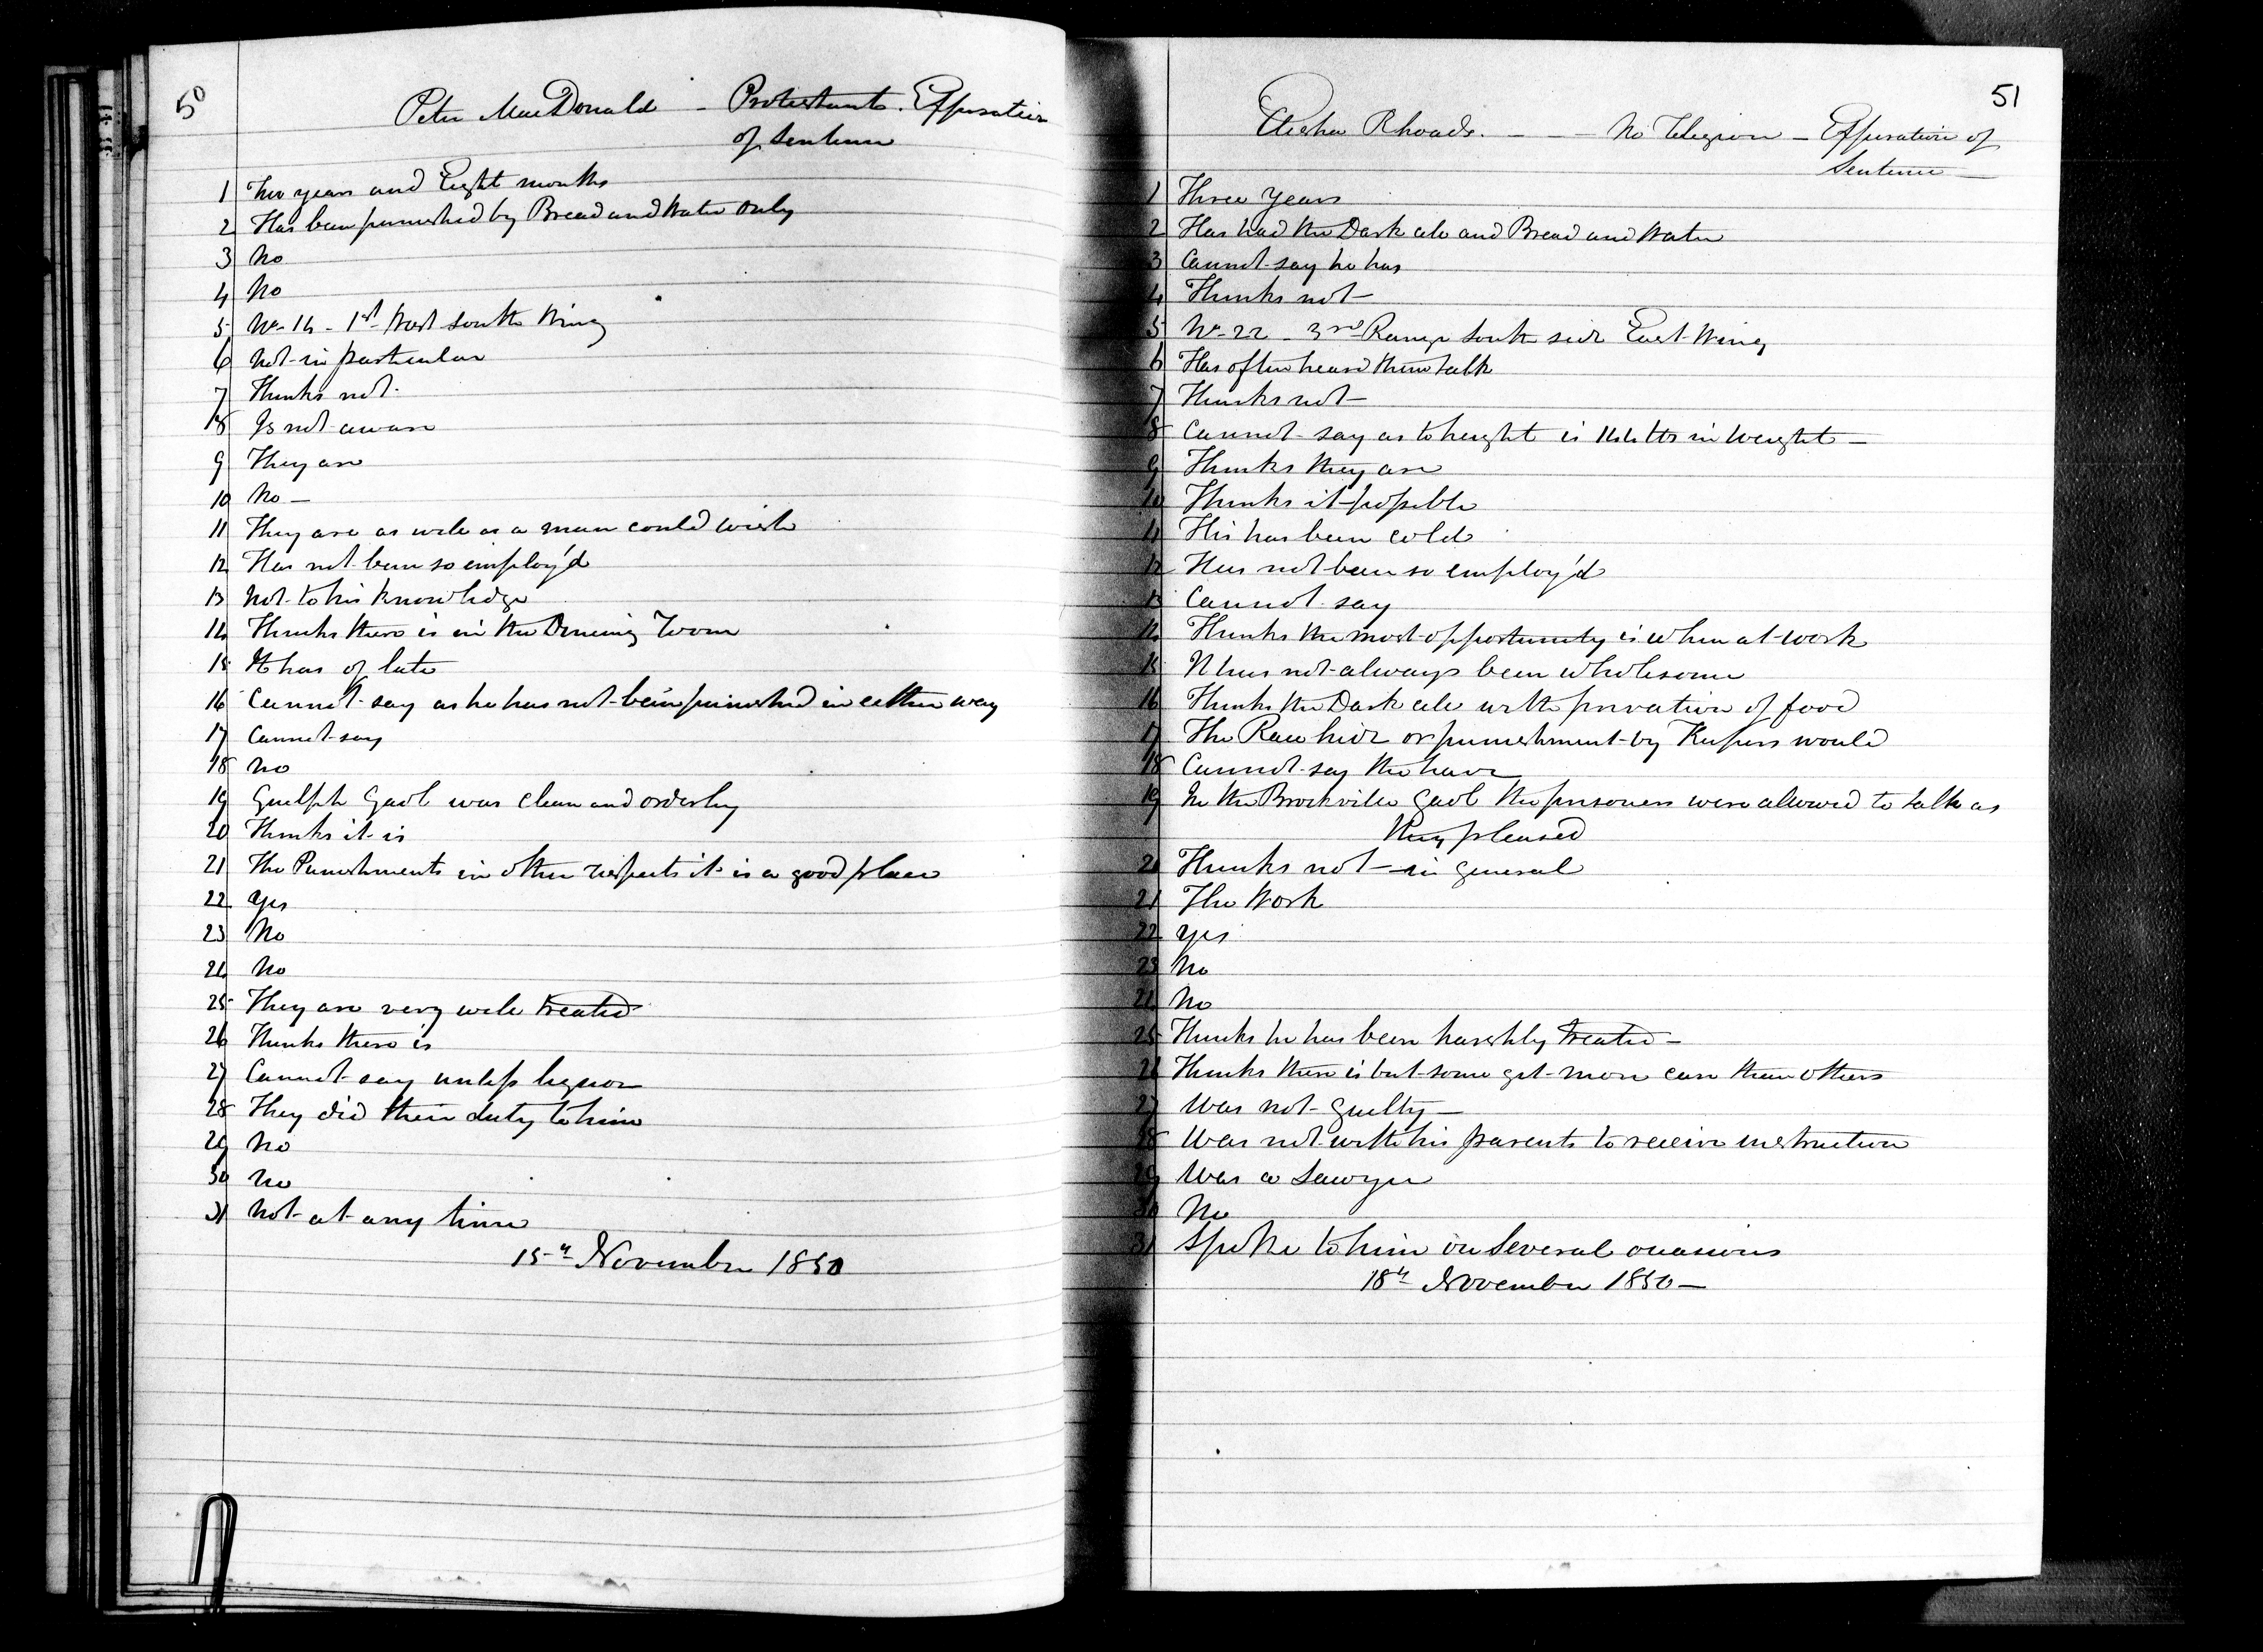 50
Peter MacDonald - Protestant. Expiration
of Sentence
1 Two years and Eight months
2 Has been punished by Bread and Water only
3 No
4 No
5 No. 14 - 1st West South Wing
6 Not in particular
7 Thinks not
8 Is not aware
9 They are
10 No -
11 They are as well as a man could wish
12 Has not been so employ'd
13 Not to his knowledge
14 Thinks there is in the Dineing Room
15 It has of late
16 Cannot say as he has not been punished in either way
17 Cannot say
18 No
19 Guelph Gaol was clean and orderly
20 Thinks it is
21 The Punishments in other respects it is a good place
22 Yes
23 No
24 No
25 They are very well treated
26 Thinks there is
27 Cannot say unless liquor
28 They did their duty to him
29 No
30 No
31 Not at any time
15th November 1850
51
Elisha Rhoads. - - - No Religion - Expiration of
Sentence -
1 Three Years
2 Has had the Dark cele and Bread and Water
3 Cannot say he has
4 Thinks not -
5 No. 22 - 3rd Range South side East Wing
6 Has often heard them talk
7 Thinks not -
8 Cannot say as to height is 144 lbs in weight -
9 Thinks they are
10 Thinks it possible
11 His has been cold
12 Has not been so employ'd
13 Cannot say
14 Thinks the most opportunity is when at work
15 It has not always been wholesome
16 Thinks the Dark cele with privation of food
17 The Raw hide or punishment by Keepers would
18 Cannot say the have
19 In the Brockville Gaol the prisoners were allowed to talk as
they pleased
20 Thinks not - in general
21 The Work
22 Yes
23 No
24 No
25 Thinks he has been harshly treated -
26 Thinks there is but some get more care than others
27 Was not guilty -
28 Was not with his parents to receive instruction
29 Was a Sawyer
30 No
31 Spoke to him on Several occasions
18th November 1850 -